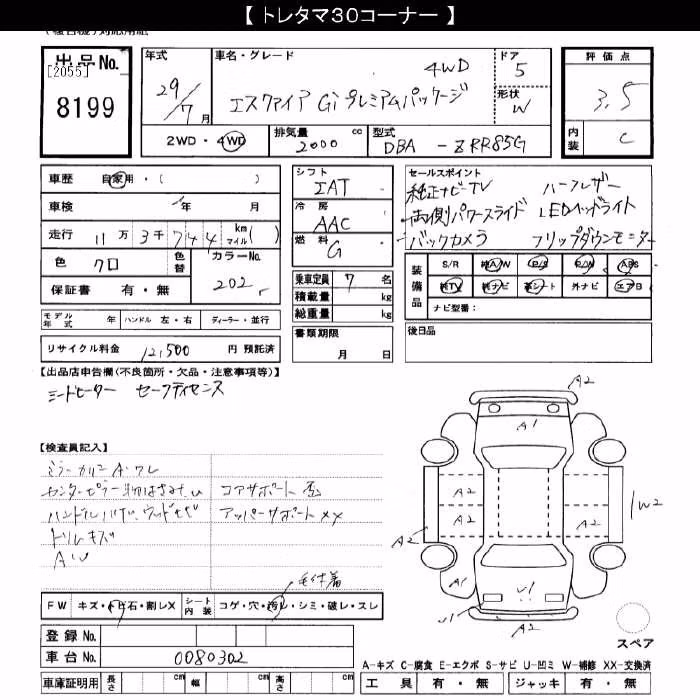 【 トレタマ３０コーナー 】
出品No.
[2055]
8199
年式
29/7月
車名・グレード
4WD
エスクァイア Gi プレミアムパッケージ
ドア
5
形状
W
評価点
3.5
内装
C
2WD・4WD
排気量 2000 cc
型式 DBA - ZRR85G
車歴 自家用・( )
車検 年 月
走行 11万3千744 km マイル( )
色 クロ
色替
カラーNo. 202
保証書 有・無
モデル年式 年 ハンドル 左・右 ディーラー・並行
リサイクル料金 12,500 円 預託済
シフト
IAT
冷房
AAC
燃料
G
乗車定員 7 名
積載量 kg
総重量 kg
書類期限
月 日
セールスポイント
純正ナビTV ハーフレザー
両側パワースライド LEDヘッドライト
バックカメラ フリップダウンモニター
装備品
S/R 純A/W P/S P/W ABS
純TV 純ナビ 革シート 外ナビ エアB
ナビ型番:
後日品
【出品店申告欄(不良箇所・欠品・注意事項等)】
シートヒーター セーフティセンス
【検査員記入】
コアサポート
アッパーサポートXX
トリムキズ
AW
毛付着
FW キズ・トビ石・割レX シート内装 コゲ・穴・汚レ・シミ・破レ・スレ
登録No.
車台No. 0080302
車庫証明用 長さ cm 幅 cm 高さ cm
A2
A1
A2
A2
A2
A2
A2
W2
A1
V1
A2
スペア
A-キズ C-腐食 E-エクボ S-サビ U-凹ミ W-補修 XX-交換済
工具 有・無 ジャッキ 有・無